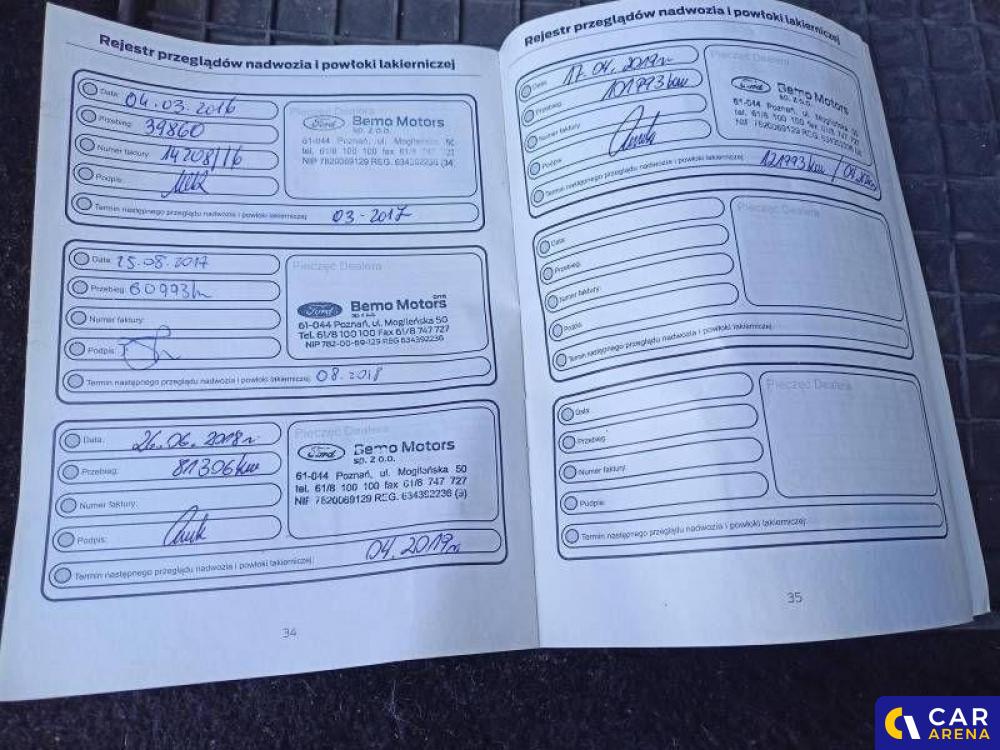 Rejestr przeglądów nadwozia i powłoki lakierniczej
Data: 04.03.2016
Przebieg: 39860
Numer faktury: 14208/16
Podpis:
Termin następnego przeglądu nadwozia i powłoki lakierniczej: 03-2017
Pieczęć Dealera
Ford Bemo Motors
sp. z o.o.
61-044 Poznań, ul. Mogileńska 50
tel. 61/8 100 100 fax 61/8 747
NIP 7820069129 REG. 634392236
Data: 25.08.2017
Przebieg: 60993
Numer faktury:
Podpis:
Termin następnego przeglądu nadwozia i powłoki lakierniczej: 08.2018
Pieczęć Dealera
Ford Bemo Motors
61-044 Poznań, ul. Mogileńska 50
Tel. 61/8 100 100 Fax 61/8 747 727
NIP 782-00-69-129 REG 634392236
Data: 26.06.2018r.
Przebieg: 81306km
Numer faktury:
Podpis:
Termin następnego przeglądu nadwozia i powłoki lakierniczej: 04.2019r.
Pieczęć Dealera
Ford Bemo Motors
sp. z o.o.
61-044 Poznań, ul. Mogileńska 50
tel. 61/8 100 100 fax 61/8 747 727
NIP 7820069129 REG. 634392236 (a)
34
Rejestr przeglądów nadwozia i powłoki lakierniczej
Data: 17.04.2019r.
Przebieg: 101793km
Numer faktury:
Podpis:
Termin następnego przeglądu nadwozia i powłoki lakierniczej: 121793km /
Pieczęć Dealera
Ford Bemo Motors
sp. z o.o.
61-044 Poznań, ul. Mogileńska 50
tel. 61/8 100 100 fax 61/8 747 727
NIP 7820069129 REG. 634392236 (a)
Data:
Przebieg:
Numer faktury:
Podpis:
Termin następnego przeglądu nadwozia i powłoki lakierniczej:
Pieczęć Dealera
Data:
Przebieg:
Numer faktury:
Podpis:
Termin następnego przeglądu nadwozia i powłoki lakierniczej:
Pieczęć Dealera
35
CAR
ARENA